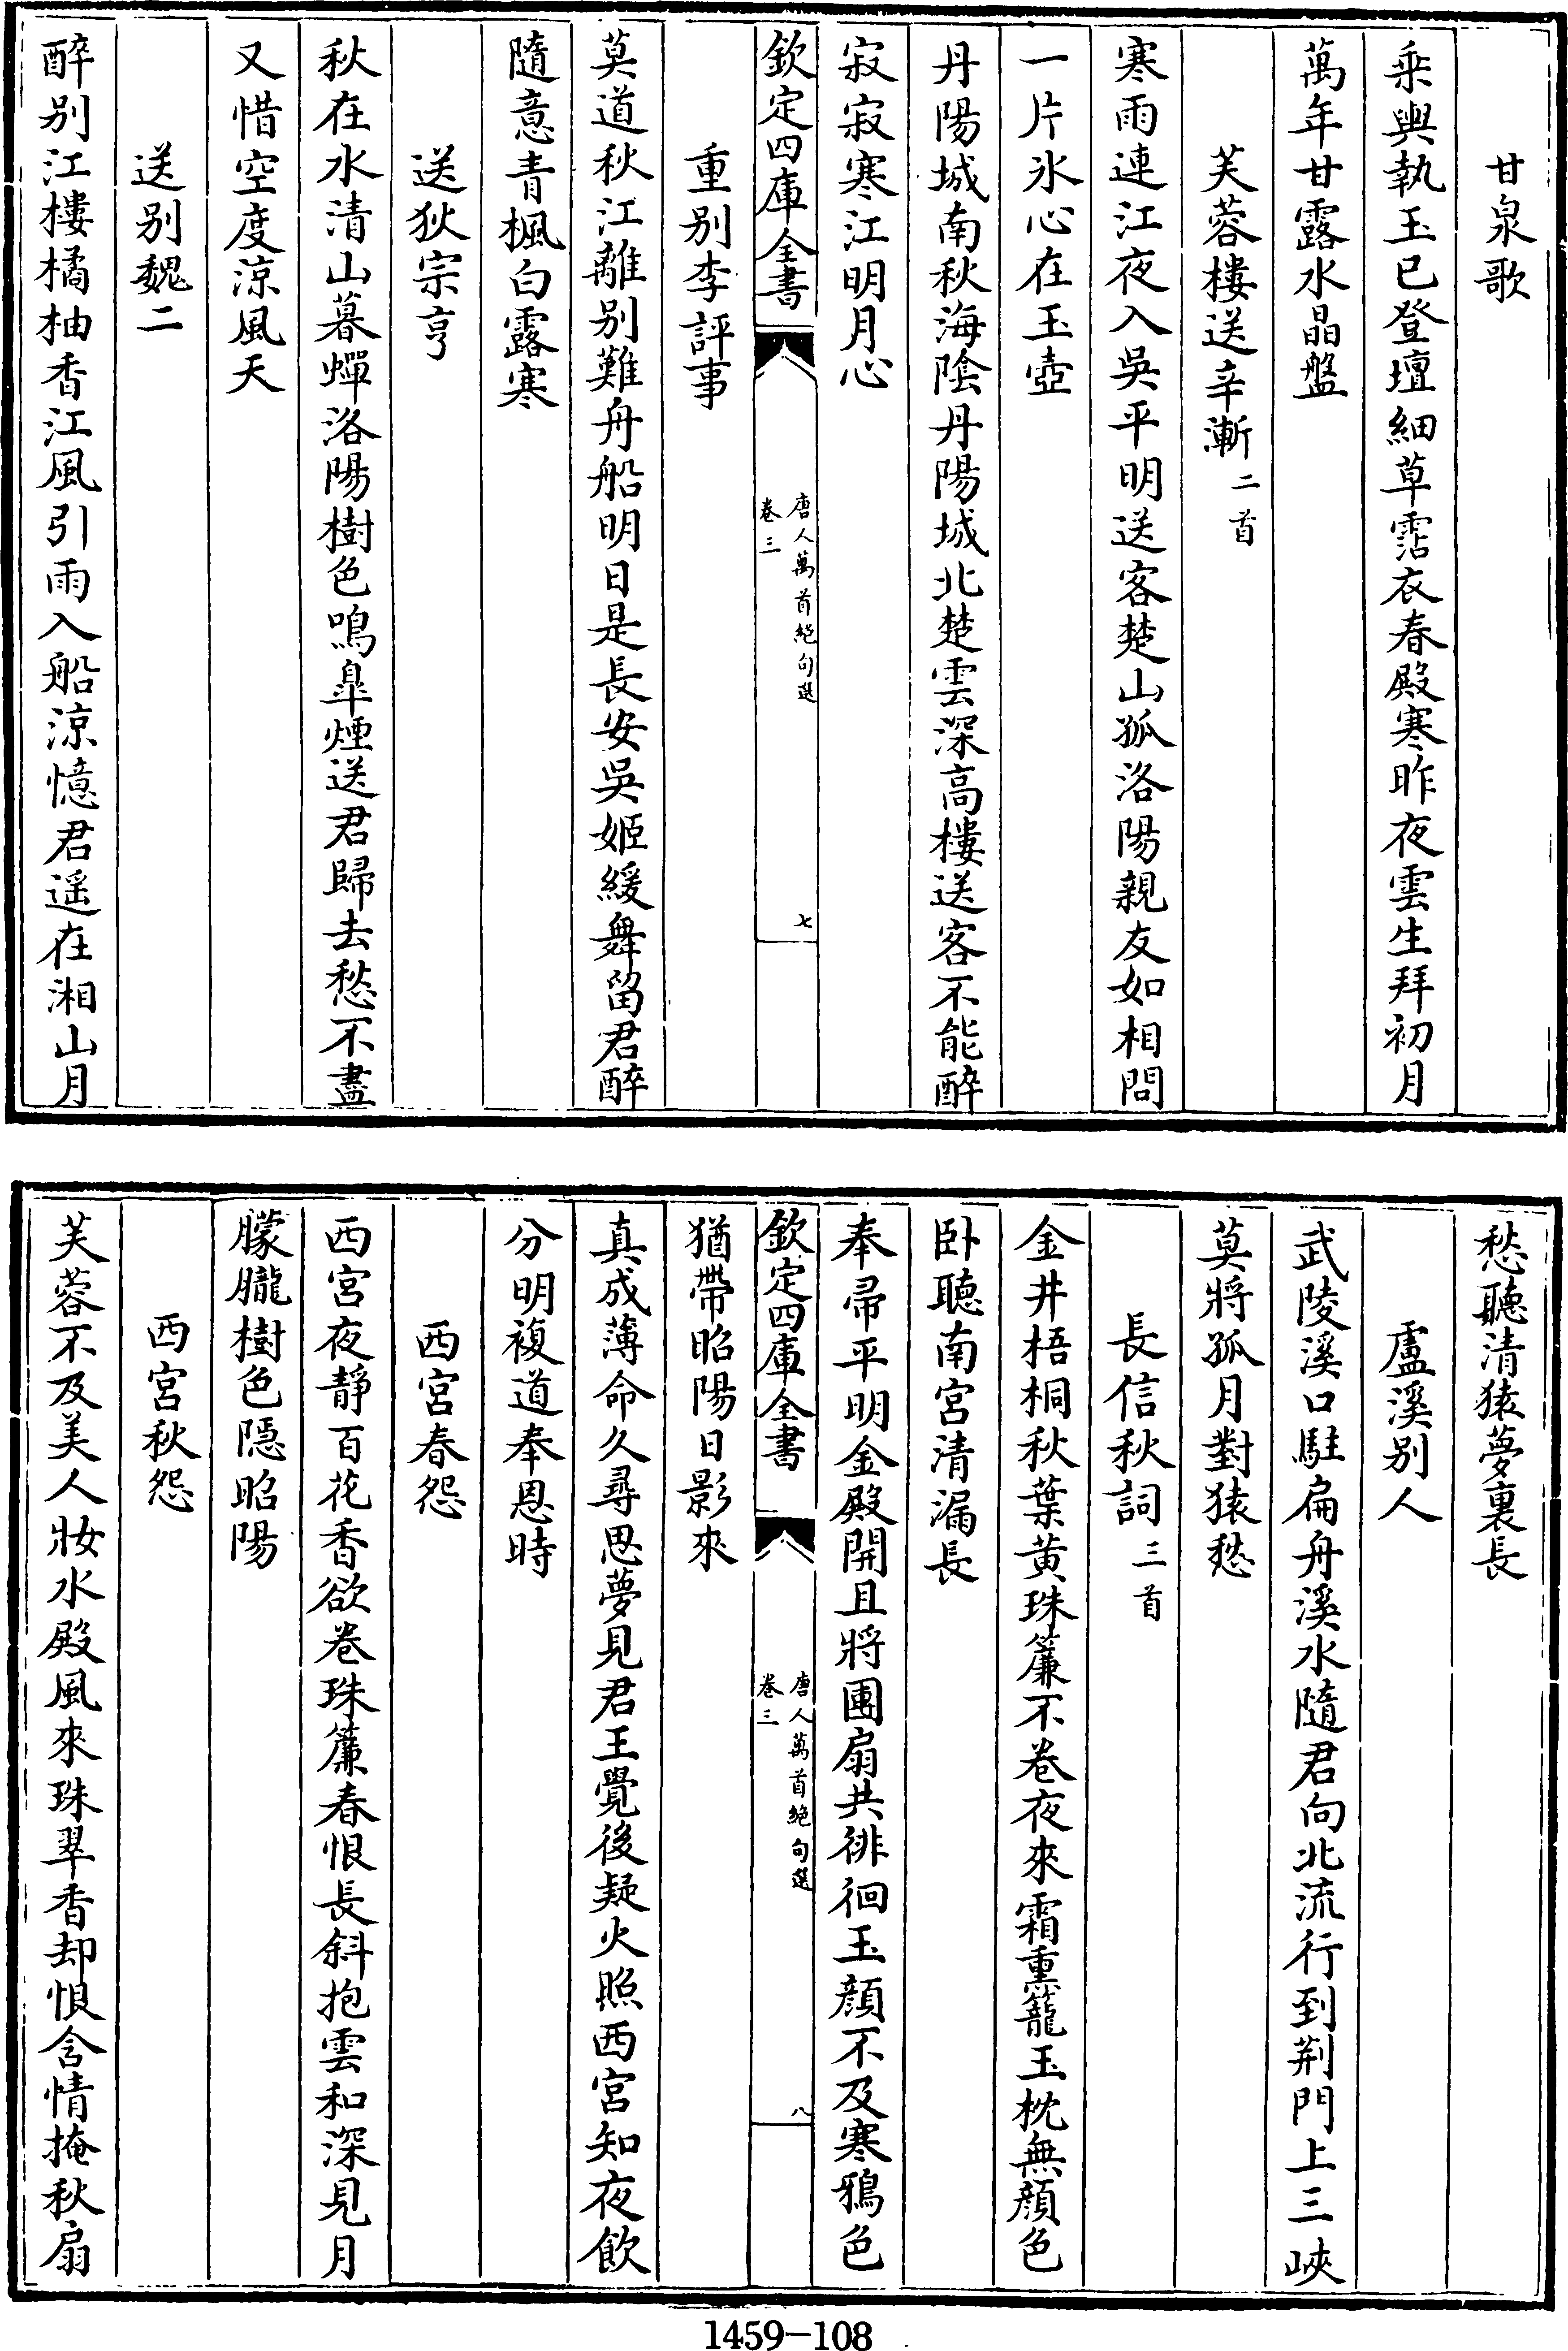 甘泉歌
乗輿執玉已登壇細草霑衣春殿寒昨夜雲生拜初月
萬年甘露水晶盤
芙蓉樓送辛漸二首
寒雨連江夜入吳平明送客楚山孤洛陽親友如相問
一片氷心在玉壺
丹陽城南秋海隂丹陽城北楚雲深高樓送客不能醉
寂寂寒江明月心
欽定四庫全書
唐人萬首絕句選
卷三
七
重别李評事
莫道秋江離别難舟船明日是長安吳姬緩舞留君醉
隨意青楓白露寒
送狄宗亨
秋在水清山暮蟬洛陽樹色鳴臯煙送君歸去愁不盡
又惜空度涼風天
送别魏二
醉别江樓橘柚香江風引雨入船涼憶君遥在湘山月
愁聽清猿夢裏長
盧溪别人
武陵溪口駐扁舟溪水隨君向北流行到荆門上三峽
莫將孤月對猿愁
長信秋詞三首
金井梧桐秋葉黄珠簾不卷夜來霜熏籠玉枕無顔色
卧聽南宮清漏長
奉帚平明金殿開且將團扇共徘徊玉顔不及寒鴉色
猶帶昭陽日影來
真成薄命久尋思夢見君王覺後疑火照西宮知夜飲
分明複道奉恩時
西宮春怨
西宮夜靜百花香欲卷珠簾春恨長斜抱雲和深見月
朦朧樹色隠昭陽
西宮秋怨
芙蓉不及美人妝水殿風來珠翠香却恨含情掩秋扇
欽定四庫全書
唐人萬首絕句選
卷三
八
1459-108